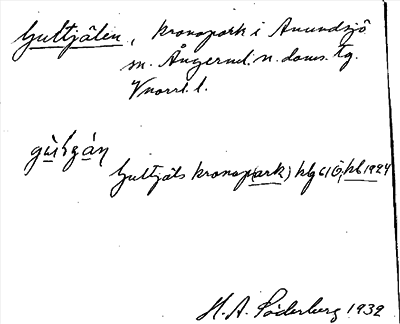 Gultjälen, kronopark i Anundsjö
sn. Ångerml. n. doms. tg.
Vnorrl. l.
Gultjäls kronop(ark) hlg
H. A. Söderberg 1932